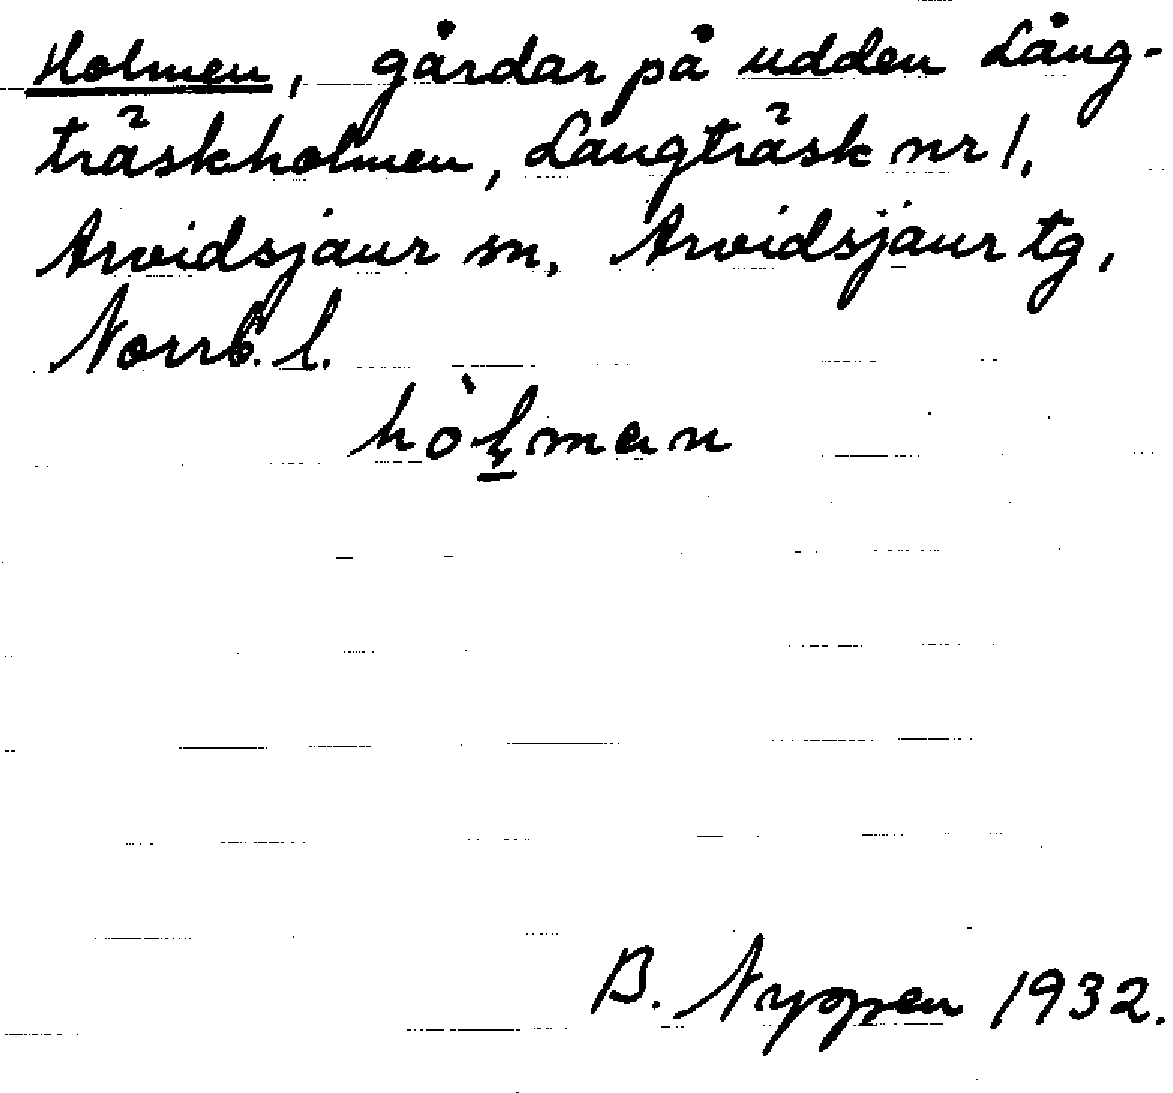 Holmen, gårdar på udden Lång-
träskholmen, Långträsk nr 1,
Arvidsjaur sn, Arvidsjaur tg,
Norrb. l.
hòl̠man
B. Nyppen 1932.